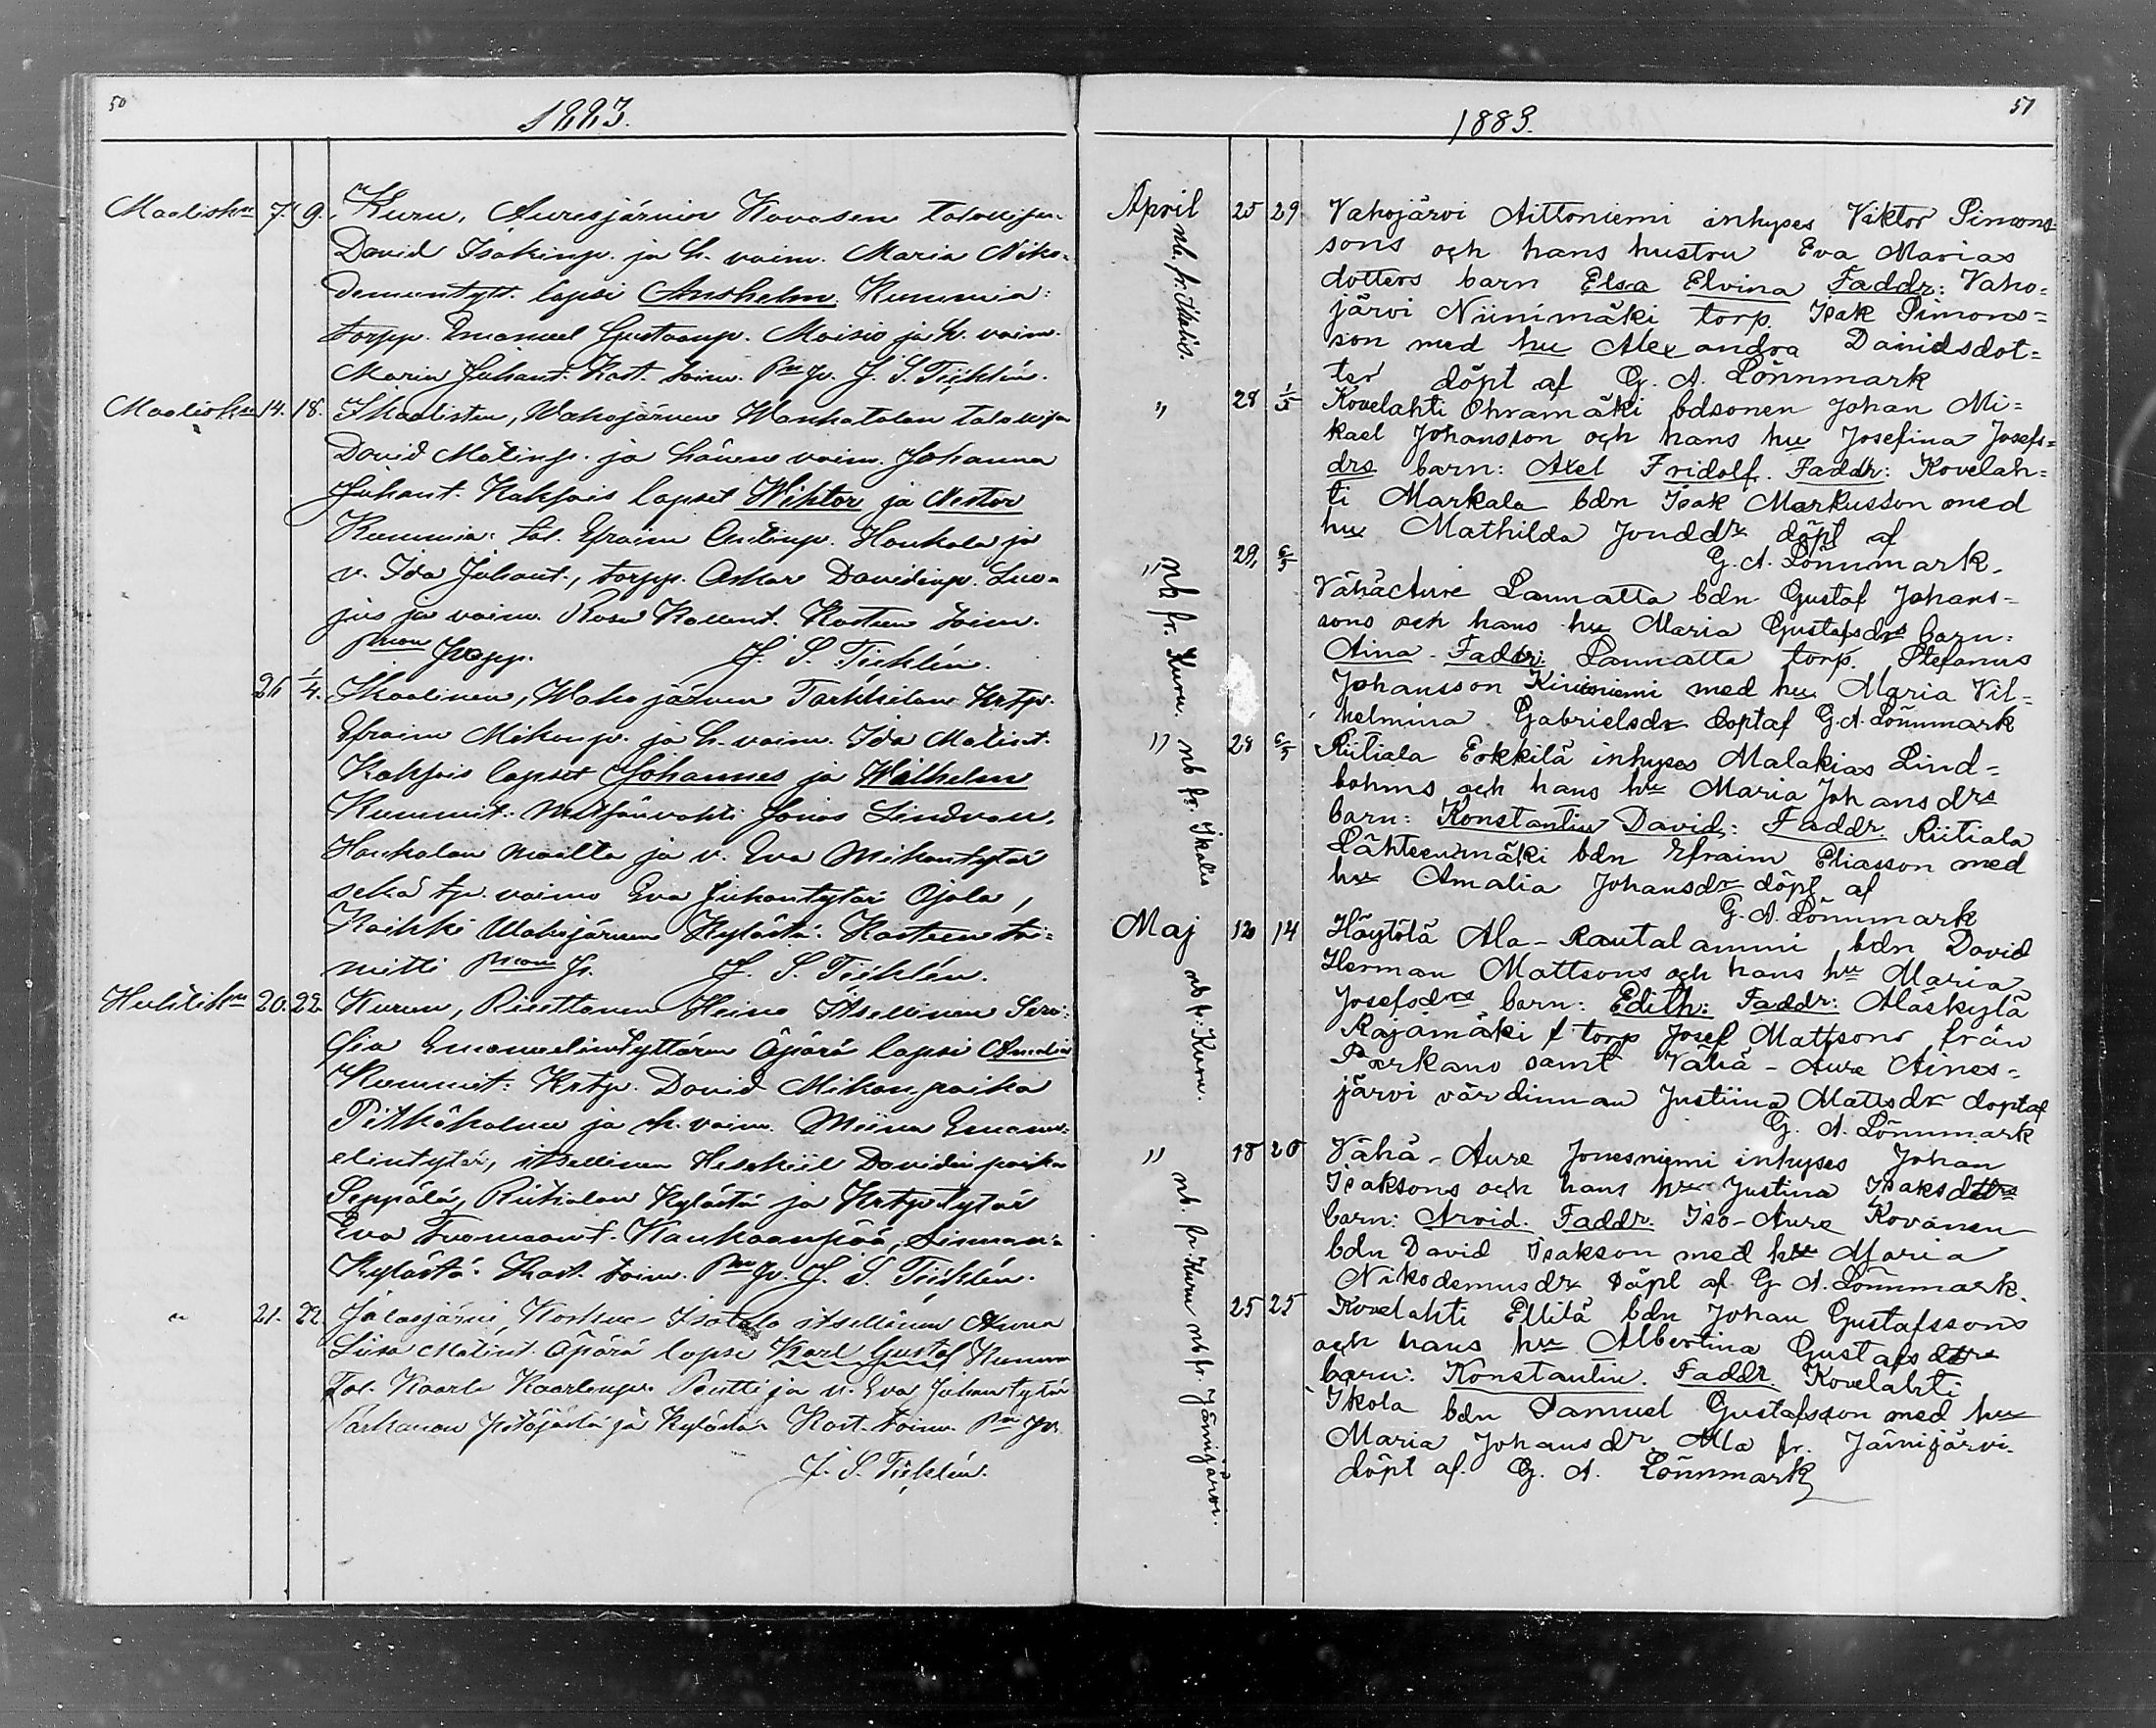 50
1883.
Maalisk. 7. 9. Kuru, Auresjärven Kovesen talollisen
David Isakinp. ja h. vaim. Maria Niko-
demuntytt. lapsi Anshelm. Kummia:
torpp. Emanuel Gustaanp. Moisio ja h. vaim.
Maria Juhant. Kast. toim. Pm. Jv. J. S. Ticklén.
Maalisk. 14. 18. Ikaalisten, Wahojärven Wanhatalon talollisen
David Matinp. ja hänen vaim. Johanna
Juhant. Kaksois lapset Wiktor ja Nestor
Kummia: tal. Efraim Antinp. Haukala ja
v. Ida Juhant., torpp. Oskar Davidinp. Luo-
jus ja vaim. Rosa Kallent. Kasteen toim.
J. S. Ticklén.
26 1/4. Ikaalinen, Wahojärven Tarkkilan Krtp.
Efraim Mikonp. ja h. vaim. Ida Matint.
Kaksois lapset Johannes ja Wilhelm
Kummit: Metsänvahti Jonas Lindroos,
Haukalan maalta ja v. Eva Mikontytär
sekä tp. vaimo Eva Juhontytär Ojala,
Kaikki Wahojärven Kylästä. Kasteen toi-
mitti J. S. Ticklén.
Huhtik. 20. 22. Kurun, Riuttanen Heino Itsellinen Sero-
fia Emanuelintyttären Äpärä lapsi Amalia
Kummit: Krtp. David Mikonpoika
Pitkäkoluu ja h. vaim. Miina Emanu-
elintytär, itsellinen Hesekiel Davidinpoika
Seppälä, Riitialan Kylästä ja Krtp. tytär
Eva Tuomaant. Kankaanpää, Linnan-
Kylästä. Kast. toim. Pm. Jv. J. S. Ticklén.
" 21. 22. Jalasjärvi, Koskue Isotalo itsellinen Anna
Liisa Matint. Äpärä lapsi Karl Gustaf Kummia
Tal. Kaarle Kaarlenp. Pentti ja v. Eva Juhontytär
Parkanon pitäjästä ja Kylästä. Kast. toim. Pm Jv.
J. S. Ticklén.
51
1883.
April 25 29 Vahojärvi Aittoniemi inhyses Viktor Simons-
sons och hans hustru Eva Marias
dotters barn Elsa Elvina Faddr: Vaho-
järvi Niinimäki torp. Isak Simons-
son med hu Alexandra Davidsdot-
ter döpt af G. A. Lönnmark
nb. fr. Ikalis.
" 28 1/5 Kovelahti Ohramäki bdsonen Johan Mi-
kael Johansson och hans hu Josefina Josefs-
drs barn: Axel Fridolf. Faddr: Kovelah-
ti Markala bdn Isak Markusson med
hu Mathilda Jonddr döpt af
G. A. Lönnmark.
" nb fr. Kuru. 29, 6/5
Vähä Aure Launatta bdn Gustaf Johans-
sons och hans hu Maria Gustafsdrs barn:
Aina. Faddr: Launatta torp. Stefanus
Johansson Kiviniemi med hu Maria Vil-
helmina Gabrielsdr döpt af G. A. Lönnmark
" nb fr. Ikalis 28 6/5 Riitiala Eokkilä inhyses Malakias Lind-
bohms och hans hu Maria Johansdrs
barn: Konstantin David: Faddr. Riitiala
Lähteenmäki bdn Efraim Eliasson med
hu Amalia Johansdr döpt af
G. A. Lönnmark
Maj 12 14 Höytölä Ala-Rautalammi bdn David
Herman Mattsons och hans hu Maria
Josefsdrs barn: Edith: Faddr: Alaskylä
Rajamäki f torp Josef Mattsons från
Parkano samt Vähä-Aure Aines-
järvi värdinnan Justiina Mattsdr döpt af
G. A. Lönnmark
nb fr. Kuru.
" 18 20 Vähä-Aure Jonesniemi inhyses Johan
Isaksons och hans hu Justina Isaksdtrs
barn: Arvid. Faddr. Iso-Aure Kovanen
bdn David Isakson med hu Maria
Nikodemusdr döpt af G. A. Lönnmark.
nb. fr. Kuru
25 25 Kovelahti Ellilä bdn Johan Gustafssons
och hans hu Albertina Gustafsdtrs
barn: Konstantin. Faddr. Kovelahti
Ikola bdn Samuel Gustafsson med hu
Maria Johansdr. Alla fr. Jämijärvi.
döpt af. G. A. Lönnmark
nb fr. Jämijärvi.